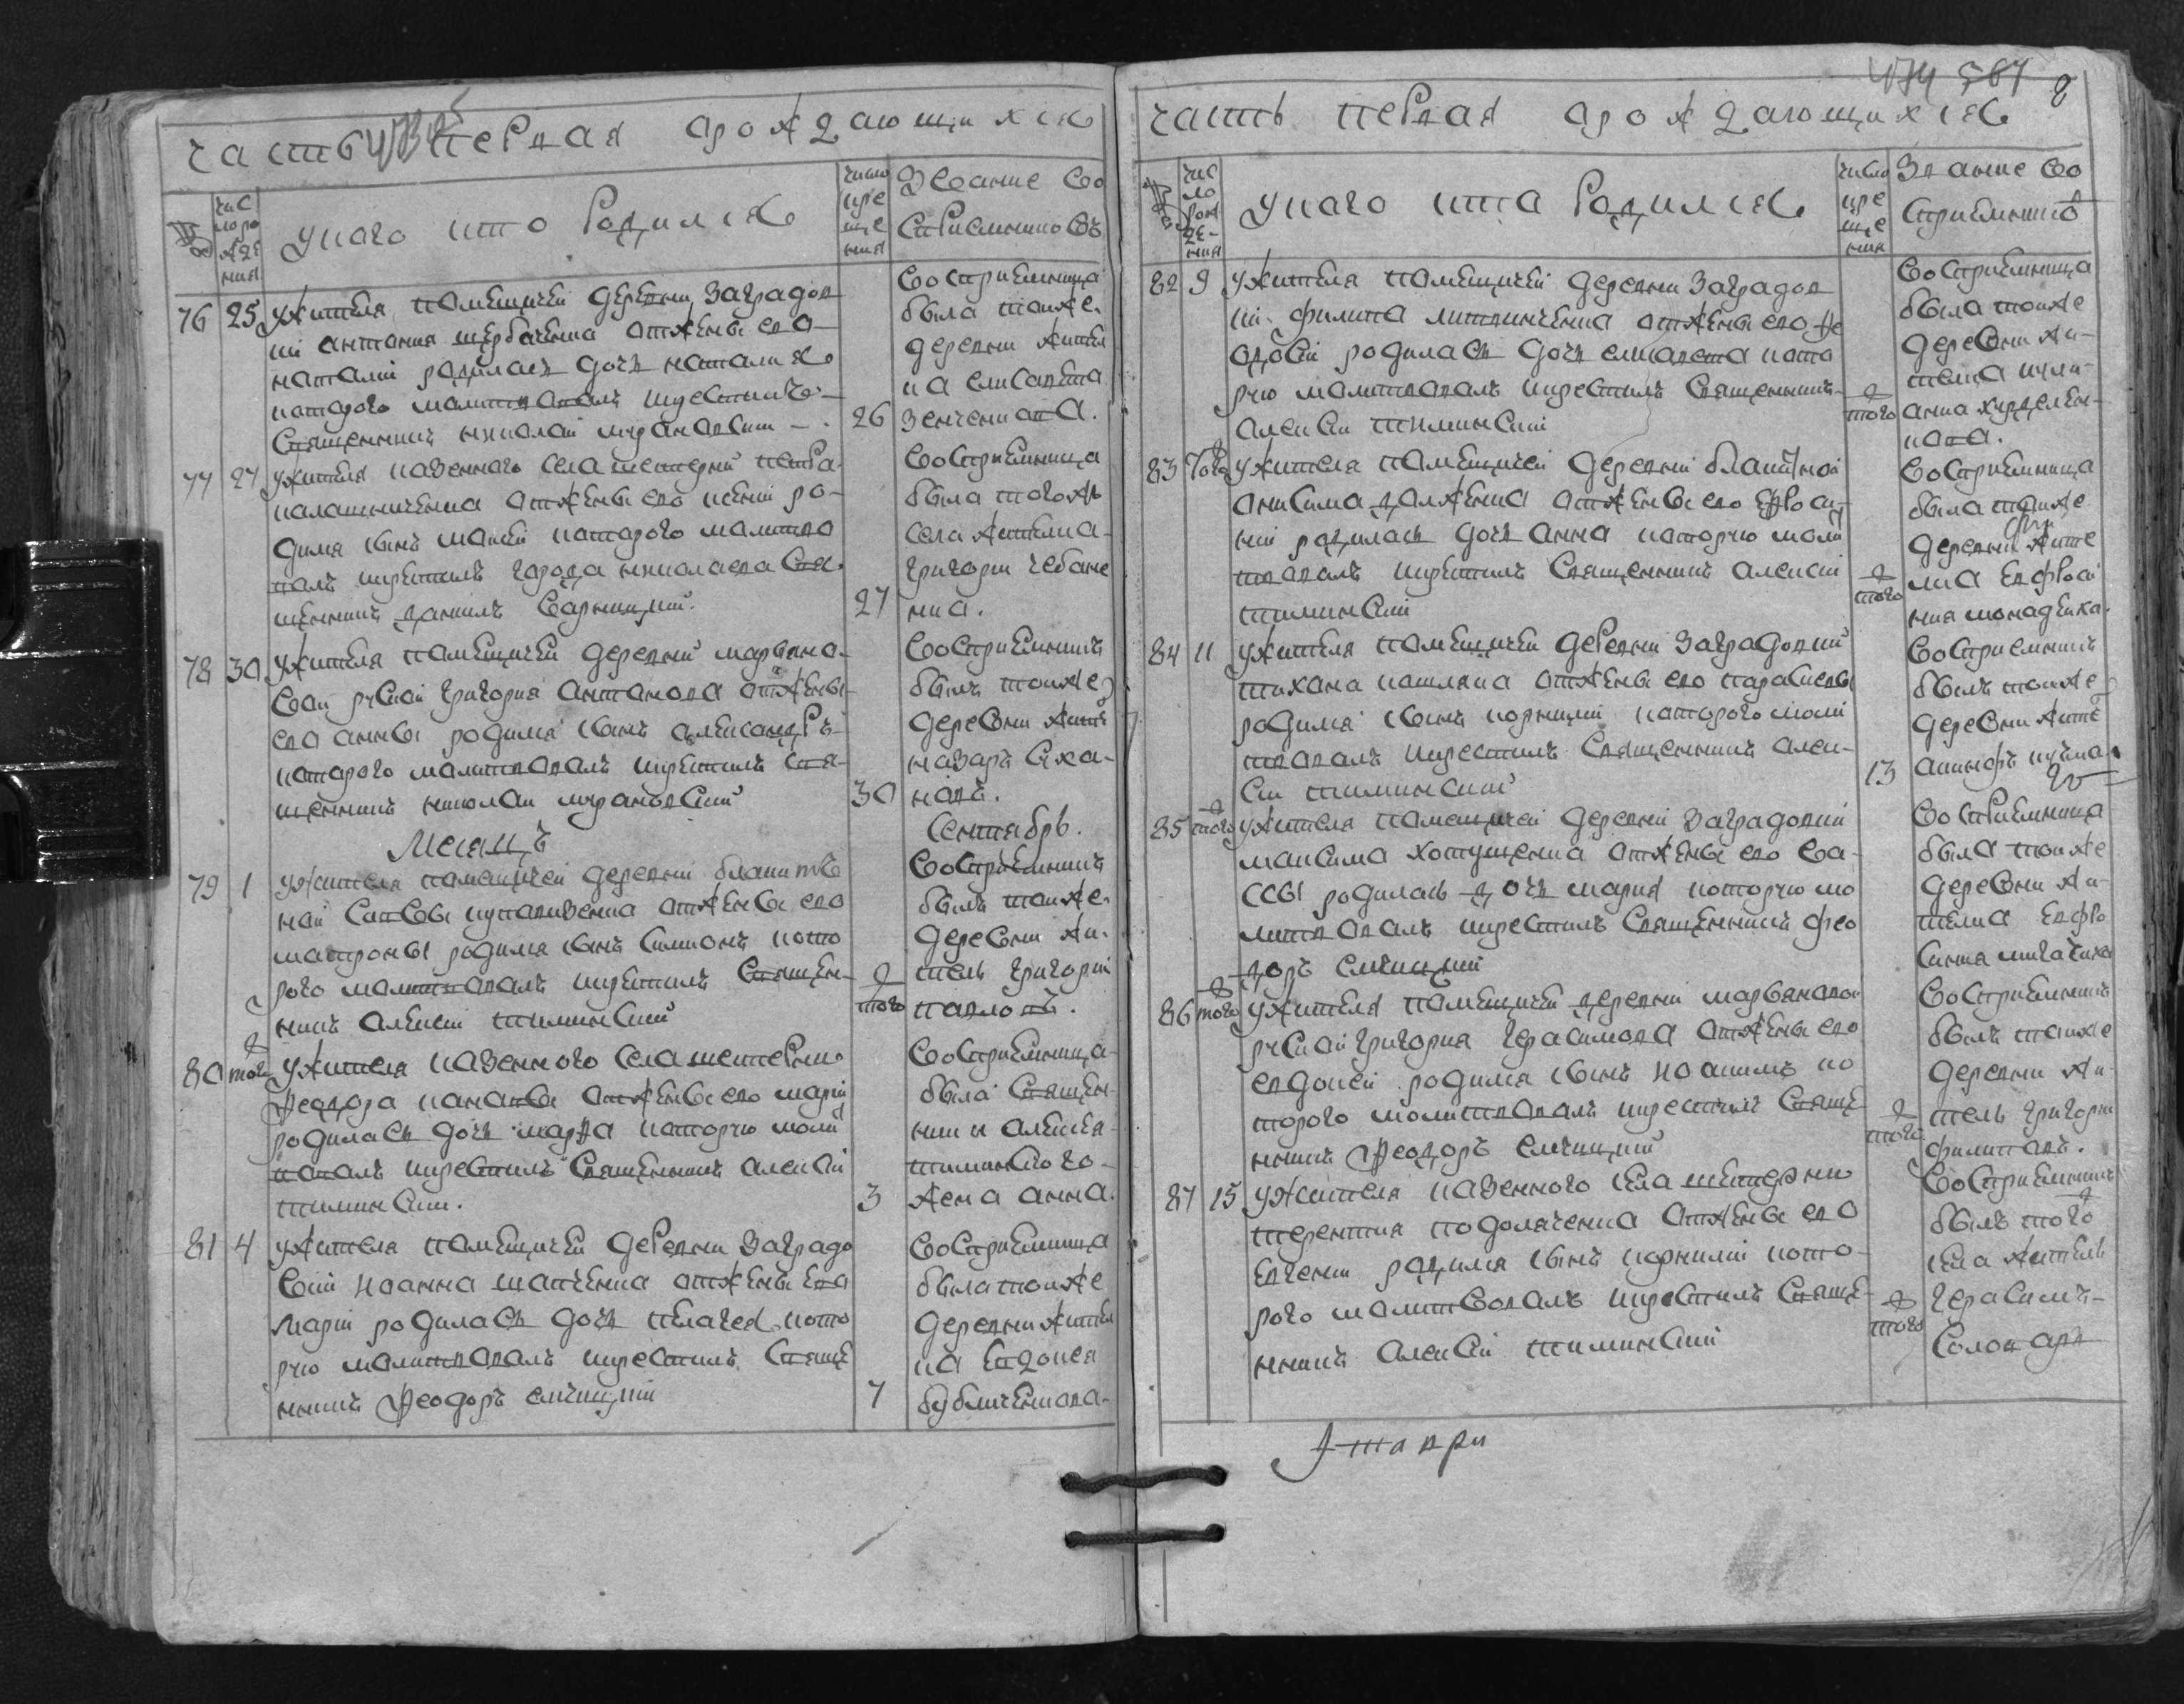 часть первая о рождающихся
№
чис
ло ро
жде
ния
у каго кто родился
число
кре
ще
ния
Звание во
сприемниковъ
76 25 у жителя помещичей деревни Заградов
ки антония щербаченка от жены его
наталии родилась дочь наталия
которого малитвовалъ и крестилъ
Священникъ николай
26
восприемница
была тоиже
деревни жител
ка елисавета
77 27 у жителя казенного села шестерни петра
калашниченка от жены его ксении ро
дился сынъ
которого малитво
валъ и крестилъ города николаева Свя
щенникъ данилъ
27
восприемница
была тогожъ
села жителка
григория чебане
нка.
78 30 у жителя помещичей деревни марьяно
вой руской григория антонова от жены
его анны родился сынъ александръ
которого малитвовалъ и крестилъ свя
щенникъ николай
30
восприемникъ
былъ тоиже
деревни жите
назаръ
Месяцъ Сентябрь.
79 1 у жителя помещичей деревни блакитъ
ной Савы
от жены его
матроны родился сынъ симионъ кото
рого малитвовалъ и крестилъ Священ
никъ алексей тиминский
того
восприемникъ
былъ тоиже
деревни жи
тель григорий
павловъ.
80 того у жителя казенного села шестерни
Феодора
от жены его марии
родилась дочь марфа которую моли
твовалъ и крестилъ Священникъ алексей
тиминский.
3
восприемница
была Священ
ника алексея
тиминского
жена анна.
81 4 у жителя помещичей деревни Заградо
вки иоанна шапченка от жены его
марии родилась дочь пелагея кото
рую малитвовалъ и крестилъ Священ
никъ Феодоръ елчицкий
7
восприемница
была тоиже
деревни жител
ка евдокея
бубличенкова
474 567 8
часть первая о рождающихся
№
чис
ло
рож
де-
ния
у каго кта родился
число
кре
ще
ния
Звание во
сприемников
82 9 у жителя помещичей деревни Заградов
ки филипа литвинченка от жены его фе
одосии родилась дочь елисавета кото
рую малитвовалъ и крестилъ Священникъ
алексей тиминский
того
восприемница
была тоиже
деревни жи
телка
83 того у жителя помещичей деревни блакитной
анисима долженка от жены его ефроси
нии родилась дочь анна которую моли
твовалъ и крестилъ Священникъ алексей
тиминский
того
восприемница
была тоиже
деревни жите
лка евфроси
ния
84 11 у жителя помещичей деревни Заградовки
тихона кошляка от жены его параскевы
родился сынъ корнилий которого моли
твовалъ и крестилъ Священникъ алек
сей тиминский
13
восприемникъ
былъ тоиже
деревни жите
85 того у жителя помещичей деревни Заградовки
максима хотущенка от жены его ва
ссы родилась дочь мария которую мо
литвовалъ и крестилъ Священникъ фео
доръ елчицкий
восприемница
была тоиже
деревни жи
телка евфро
синия
86 того у жителя помещичей деревни марьяновой
руской григория герасимова от жены его
евдокеи родился сынъ иоакимъ ко
торого молитвовалъ и крестилъ Священ
никъ Феодоръ елчицкий
того
восприемникъ
былъ тоиже
деревни жи
тель григорий
филиповъ.
87 15 у жителя казенного села шестерни
терентия подоляченка от жены его
евгении родился сынъ корнилий кото
рого малитвовалъ и крестилъ Священ
никъ алексей тиминский
того
восприемникъ
былъ того
села житель
герасимъ